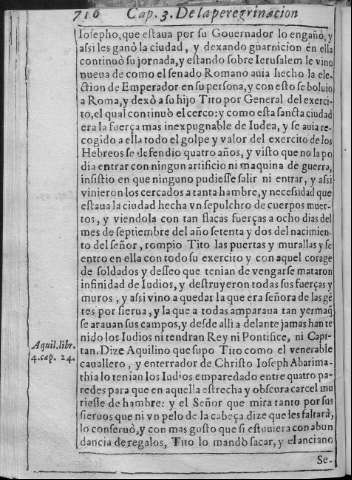 716 Cap. 3. De la peregrinacion
Iosepho, que estaua por su Gouernador lo engañò, y
assi les ganò la ciudad, y dexando guarnicion en ella
continuò su jornada, y estando sobre Ierusalem le vino
nueua de como el senado Romano auia hecho la ele-
ction de Emperador en su persona, y con esto se boluio
a Roma, y dexò a su hijo Tito por General del exerci-
to, el qual continuò el cerco: y como esta sancta ciudad
era la fuerça mas inexpugnable de Iudea, y se auia re-
cogido a ella todo el golpe y valor del exercito de los
Hebreos se defendio quatro años, y visto que no la po
dia entrar con ningun artificio ni maquina de guerra,
insistio en que ninguno pudiesse salir ni entrar, y assi
vinieron los cercados a tanta hambre, y necessidad que
estaua la ciudad hecha vn sepulchro de cuerpos muer-
tos, y viendola con tan flacas fuerças a ocho dias del
mes de septiembre del año setenta y dos del nacimien-
to del señor, rompio Tito las puertas y murallas y se
entro en ella con todo su exercito y con aquel corage
de soldados y desseo que tenian de vengarse mataron
infinidad de Iudios, y destruyeron todas sus fuerças y
muros, y assi vino a quedar la que era señora de las gẽ
tes por sierua, y la que a todas amparaua tan yerma q̃
se arauan sus campos, y desde alli a delante jamas han te
nido los Iudios ni tendran Rey ni Pontifice, ni Capi-
tan. Dize Aquilino que supo Tito como el venerable
cauallero, y enterrador de Christo Ioseph Abarima-
thia lo tenian los Iudios emparedado entre quatro pa-
redes para que en aquella estrecha y obscura carcel mu
riesse de hambre: y el Señor que mira tanto por sus
sieruos que ni vn pelo de la cabeça dize que les faltarà,
lo conseruò, y con mas gusto que si estuuiera con abun
dancia de regalos, Tito lo mandò sacar, y el anciano
Se-
Aquil. libr.
4. cap. 24.